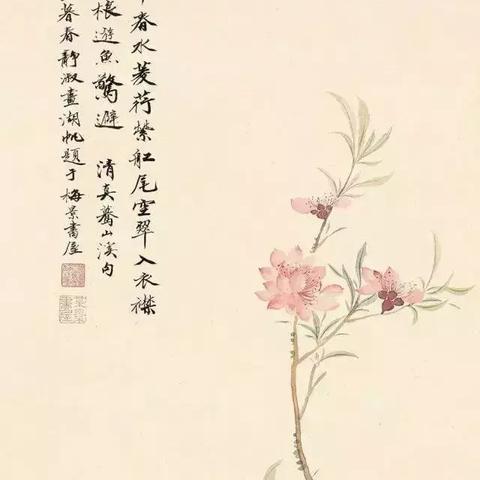 春水菱荇縈舡尾空翠入衣襟
桹遊魚驚避 清真驀山溪句
暮春靜淑畫湖帆題于梅景書屋